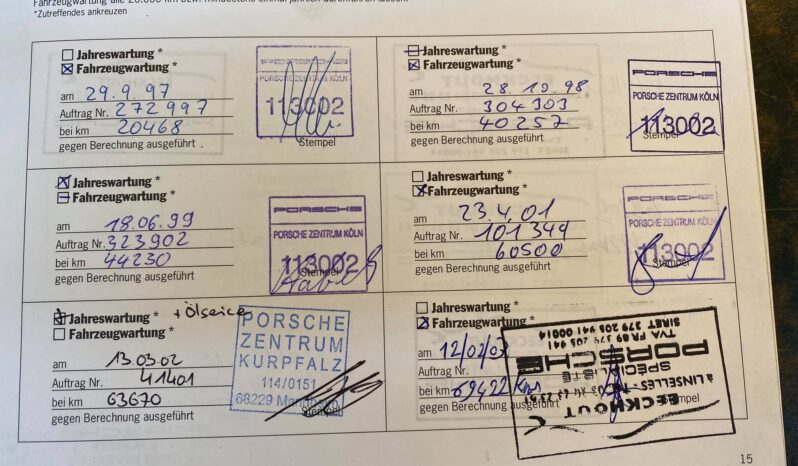 *Zutreffendes ankreuzen
Jahreswartung *
Fahrzeugwartung *
am 29.9.97
Auftrag Nr. 272997
bei km 20468
gegen Berechnung ausgeführt
PORSCHE
PORSCHE ZENTRUM KÖLN
113002
Stempel
Jahreswartung *
Fahrzeugwartung *
am 28.10.98
Auftrag Nr. 304303
bei km 40257
gegen Berechnung ausgeführt
PORSCHE
PORSCHE ZENTRUM KÖLN
113002
Stempel
Jahreswartung *
Fahrzeugwartung *
am 18.06.99
Auftrag Nr. 323902
bei km 44230
gegen Berechnung ausgeführt
PORSCHE
PORSCHE ZENTRUM KÖLN
113002
Stempel
Jahreswartung *
Fahrzeugwartung *
am 23.4.01
Auftrag Nr. 101349
bei km 60500
gegen Berechnung ausgeführt
PORSCHE
PORSCHE ZENTRUM KÖLN
113002
Stempel
Jahreswartung *
Fahrzeugwartung *
am 13.03.02
Auftrag Nr. 41401
bei km 63670
gegen Berechnung ausgeführt
PORSCHE
ZENTRUM
KURPFALZ
114/0151
68229
Stempel
Jahreswartung *
Fahrzeugwartung *
am 12/02/03
Auftrag Nr.
bei km 69422 Kms
gegen Berechnung ausgeführt
BECKHOUT
À LINSELLES
SPÉCIALISTE
PORSCHE
SIRET 379 205 941 00014
Stempel
15